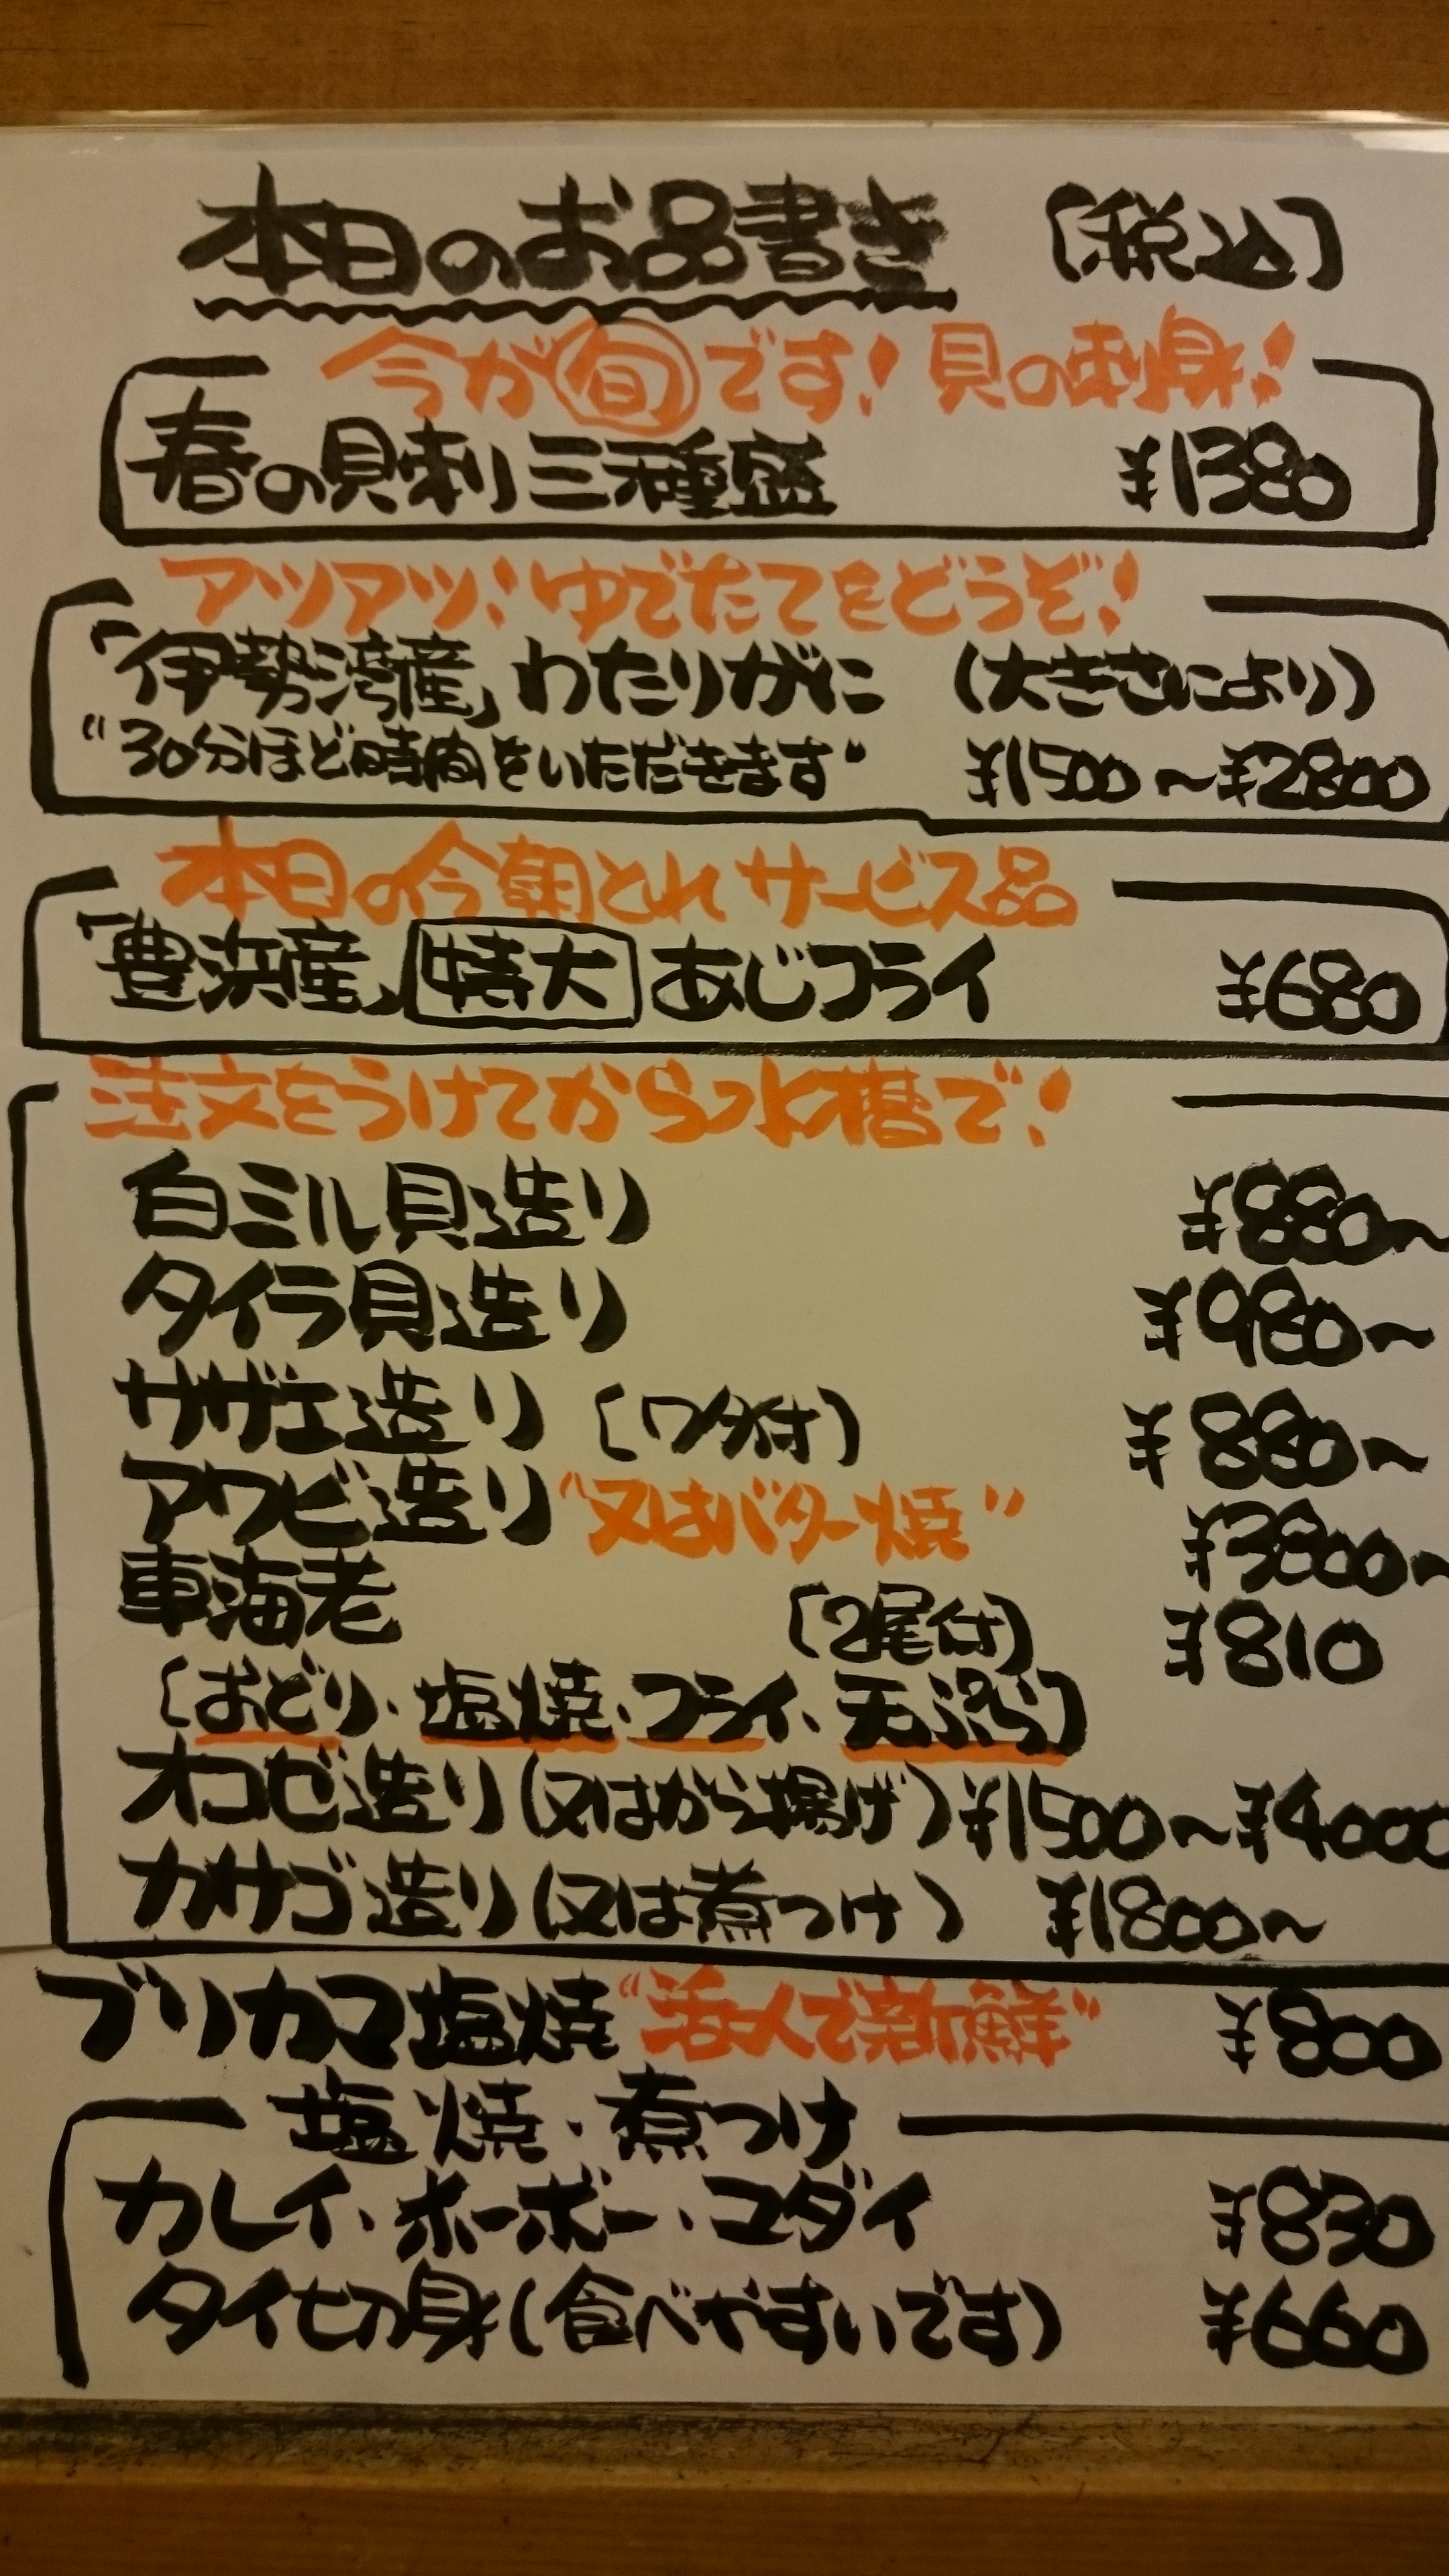 本日のお品書き 〔税込〕
今が旬です!貝の刺身!
春の貝刺三種盛 ¥1380
アツアツ!ゆでたてをどうぞ!
「伊勢湾産」わたりがに (大きさにより)
"30分ほど時間をいただきます" ¥1500~¥2800
本日の今朝とれサービス品
「豊浜産」特大あじフライ ¥680
注文をうけてから水槽で!
白ミル貝造り ¥880~
タイラ貝造り ¥980~
サザエ造り〔ワタ付〕 ¥880~
アワビ造り"又はバター焼" ¥3800~
車海老 〔2尾付〕 ¥810
〔おどり・塩焼・フライ・天ぷら〕
オコゼ造り(又はから揚げ) ¥1500~¥4000
カサゴ造り(又は煮つけ) ¥1800~
ブリカマ塩焼"活〆で新鮮" ¥800
塩焼・煮つけ
カレイ・ホーボー・コダイ ¥830
タイ切り身(食べやすいです) ¥660